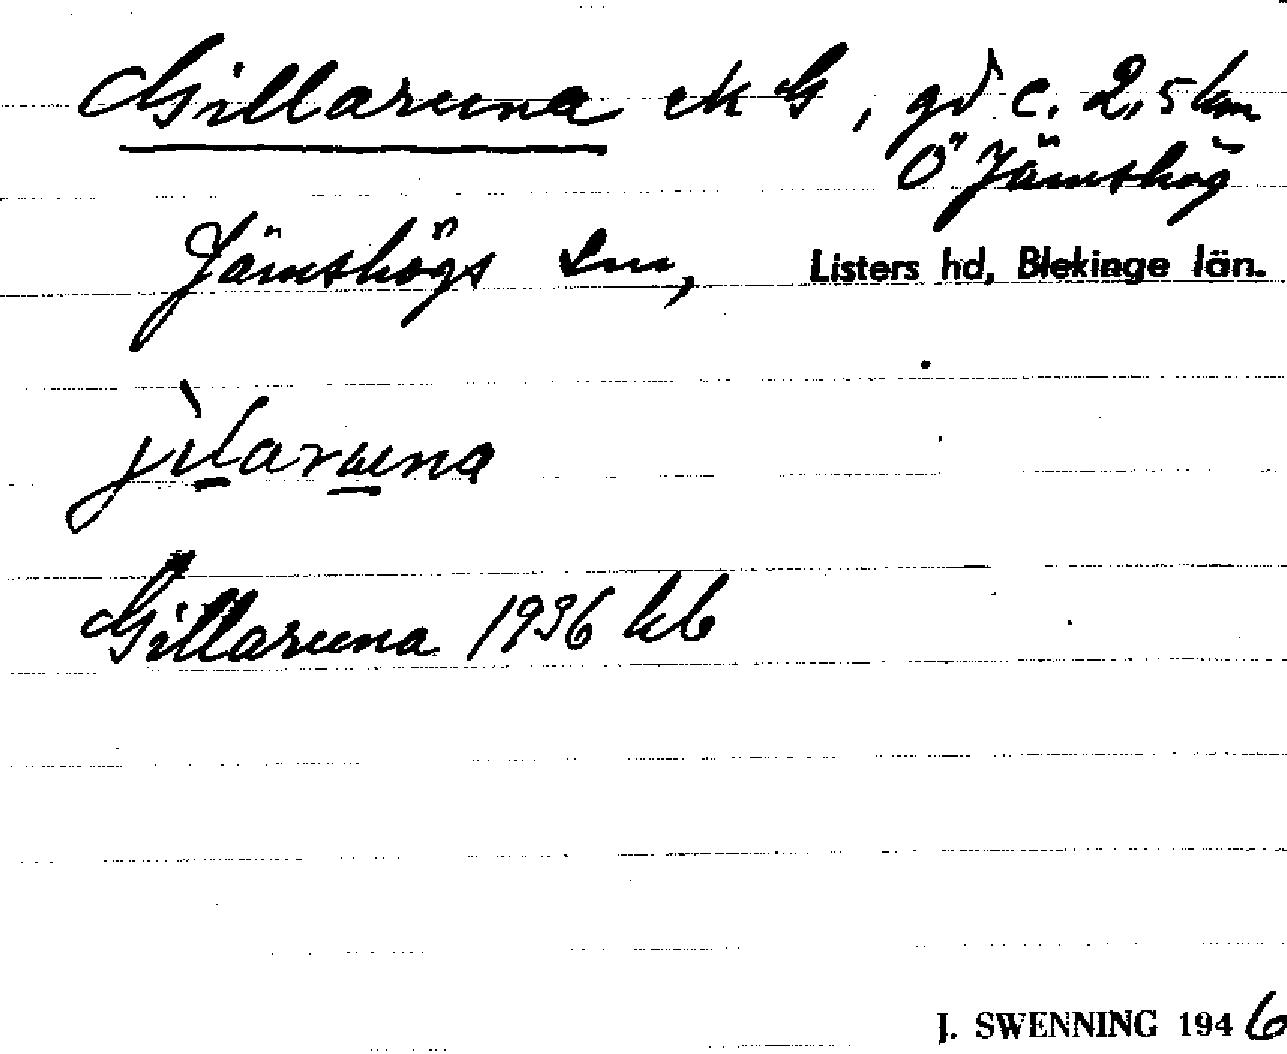 Gillaruna ek G, gd c. 2,5 km
Ö Jämshög
Jämshögs sn, Listers hd, Blekinge län.
jìlaruna
Gillaruna 1936 kb
J. SWENNING 1946